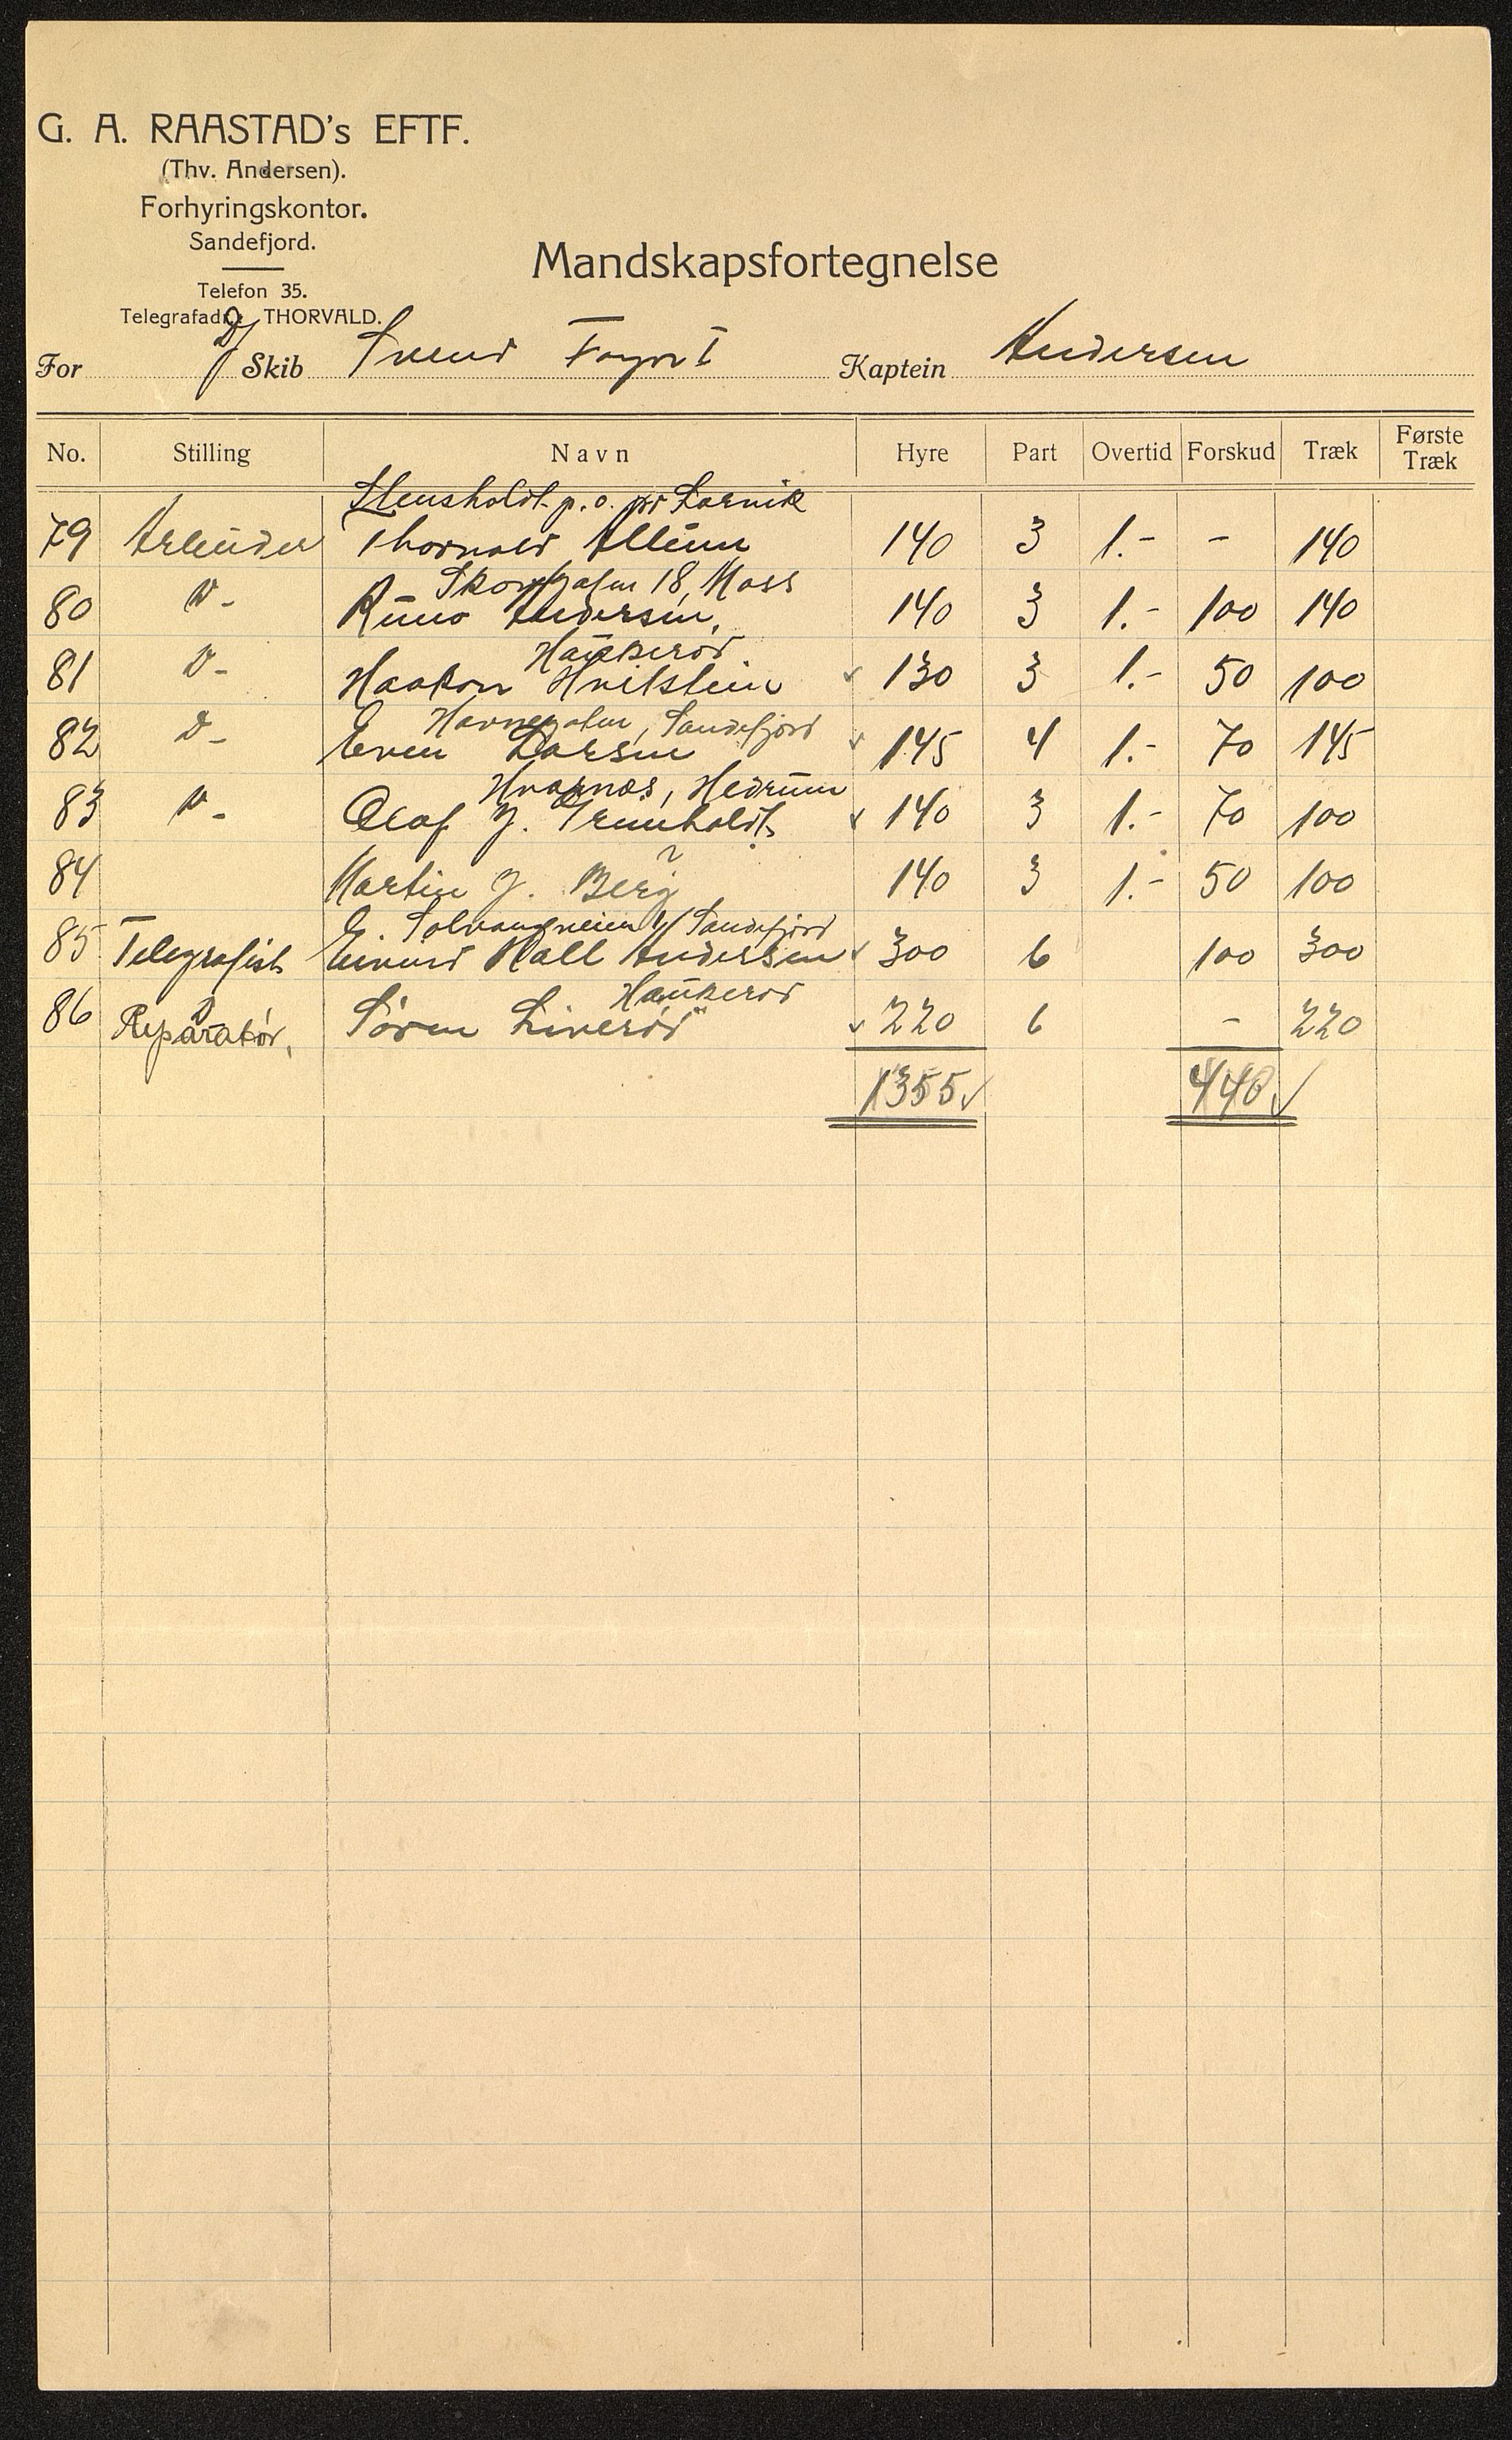 G. A. RAASTAD's EFTF.
(Thv. Andersen).
Forhyringskontor.
Sandefjord.
Telefon 35.
Telegrafadr.: THORVALD.
Mandskapsfortegnelse
For D/ Skib Svend Foyn I Kaptein Andersen
No. Stilling Navn Hyre Part Overtid Forskud Træk Første Træk
Stensholdt p.o. pr Larvik
79 Arbeider Thorvald Allum 140 3 1.- - 140
Skovgaten 18, Moss
80 D- Runo Andersen, 140 3 1.- 100 140
Haukerød
81 D- Haakon Hvitstein 130 3 1.- 50 100
Havnegaten, Sandefjord
82 D- Even Larsen 145 4 1.- 70 145
Hvarnes, Hedrum
83 D- Olaf J. 140 3 1.- 70 100
?
84 Martin J. Berg 140 3 1.- 50 100
Solvangveien Sandefjord
85 Telegrafist Eivind Hall Andersen 300 6 100 300
Haukerød
86 Reparatør, Søren Liverød 220 6 - 220
1355 440